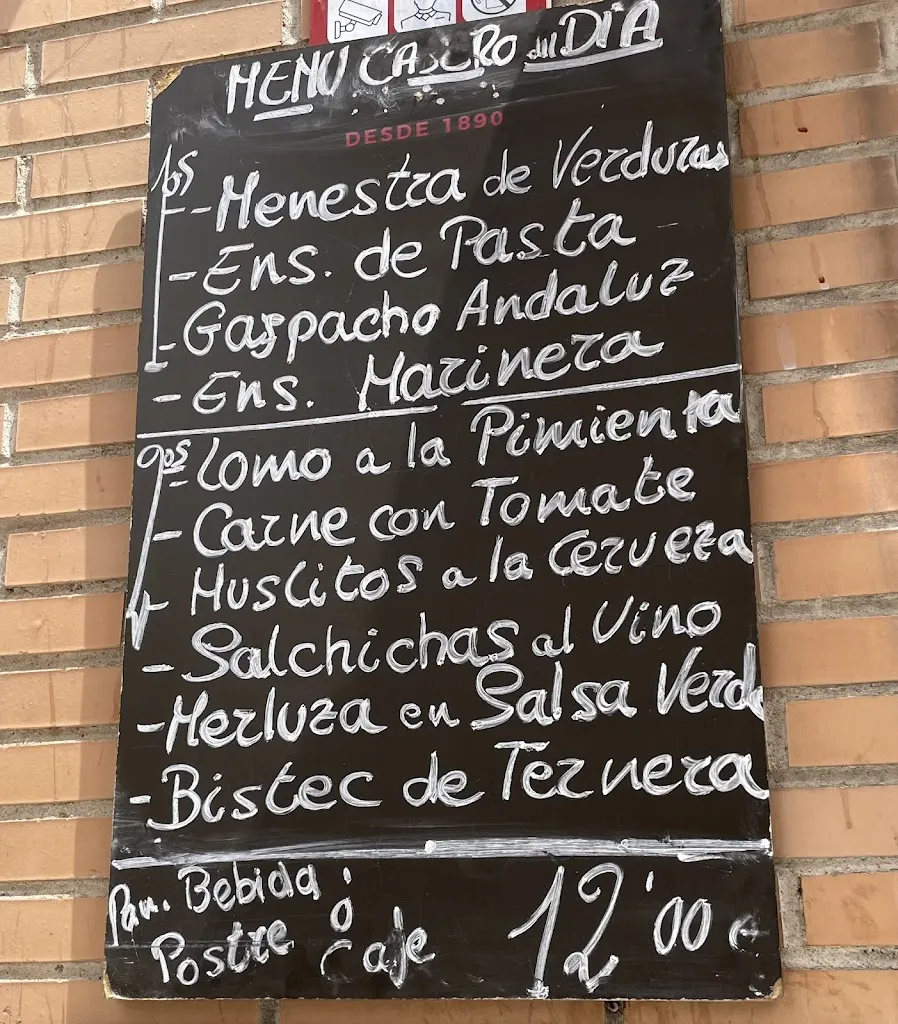 MENU CASERO del DÍA
DESDE 1890
1os
- Menestra de Verduras
- Ens. de Pasta
- Gaspacho Andaluz
- Ens. Marinera
2os
- Lomo a la Pimienta
- Carne con Tomate
Muslitos a la Cerveza
- Salchichas al Vino
- Merluza en Salsa Verde
- Bistec de Ternera
Pan. Bebida
Postre ó Cafe
12'00 €